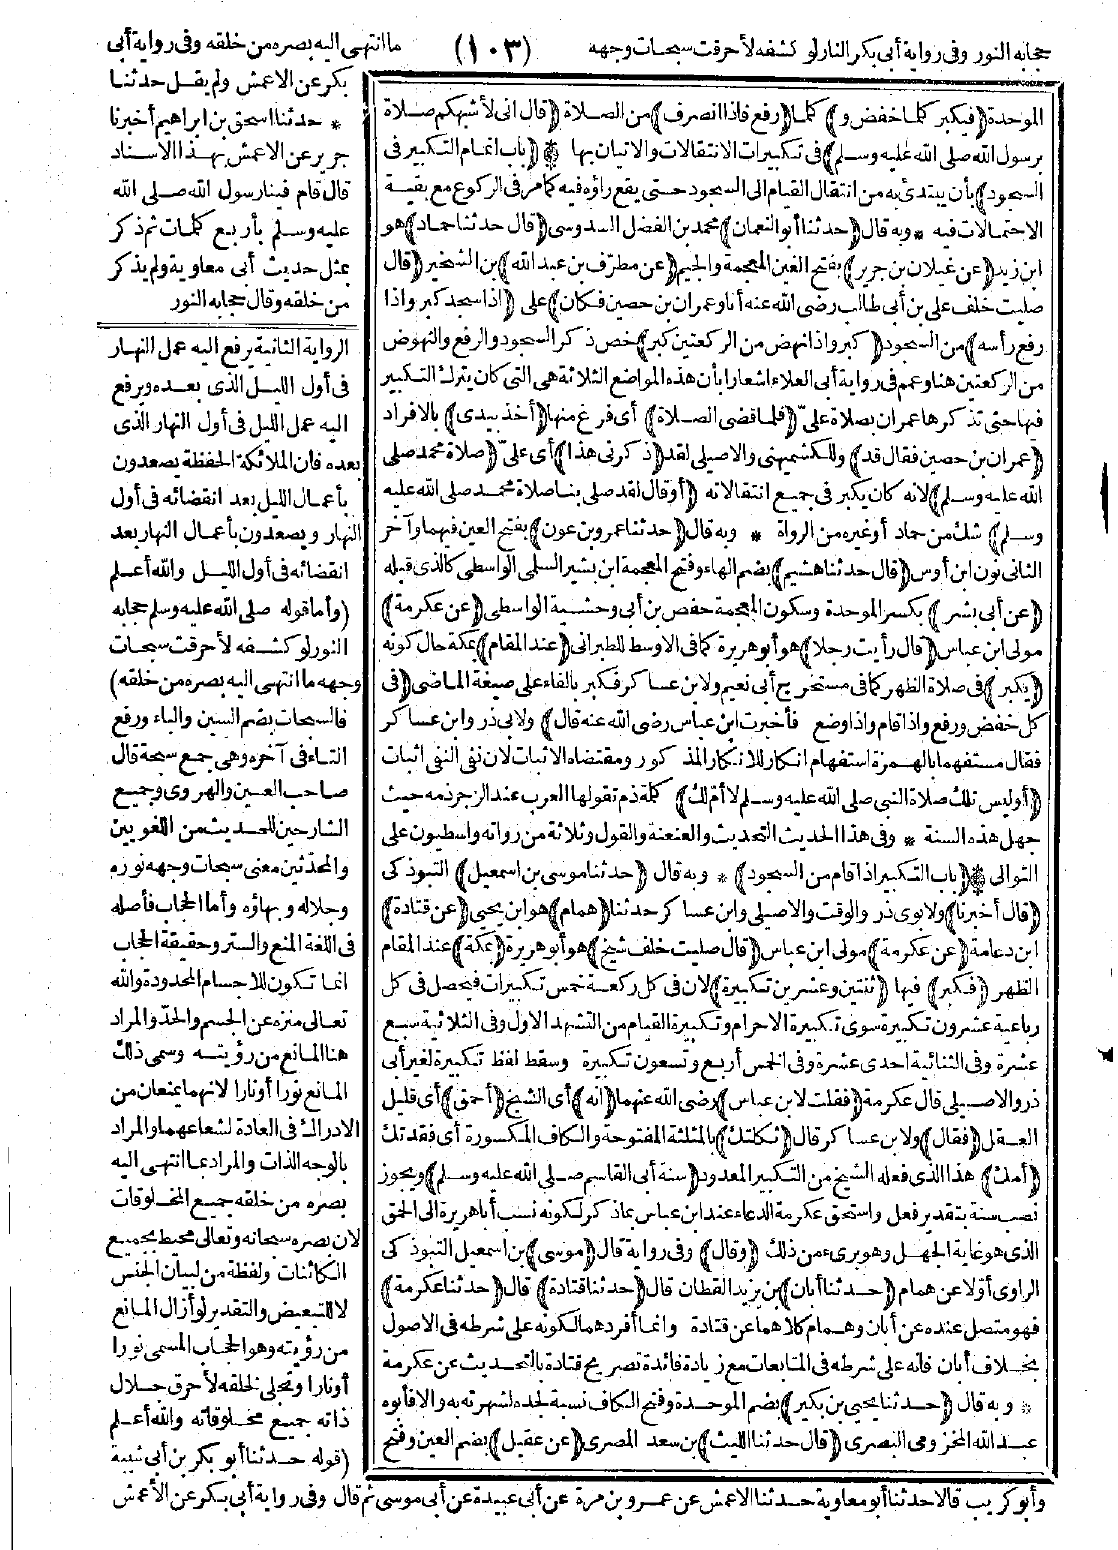 حجابه النور وفى رواية أبى بكر النار لو كشفه لأحرقت سبحات وجهه
(١٠٣)
ما انتهى اليه بصره من خلقه وفى رواية أبى
الموحدة (فيكبر كلما خفض و) كلما (رفع فاذا انصرف) من الصلاة (قال انى لأشبهكم صلاة
برسول الله صلى الله عليه وسلم) فى تكبيرات الانتقالات والاتيان بها * (باب اتمام التكبير فى
السجود) بأن يبتدئ به من انتقال القيام الى السجود حتى يقع راؤه فيه كما مر فى الركوع مع بقية
الاحتمالات فيه * وبه قال (حدثنا أبو النعمان) محمد بن الفضل السدوسى (قال حدثنا حماد) هو
ابن زيد (عن غيلان بن جرير) بفتح الغين المعجمة والجيم (عن مطرف بن عبد الله) بن الشخير (قال
صليت خلف على بن أبى طالب رضى الله عنه أنا وعمران بن حصين فكان) على (اذا سجد كبر واذا
رفع رأسه) من السجود (كبر واذا نهض من الركعتين كبر) خص ذكر السجود والرفع والنهوض
من الركعتين هنا وعمم فى رواية أبى العلاء اشعارا بأن هذه المواضع الثلاثة هى التى كان يترك التكبير
فيها حتى تذكرها عمران بصلاة علىّ (فلما قضى الصلاة) أى فرغ منها (أخذ بيدى) بالافراد
(عمران بن حصين فقال قد) وللكشميهنى والاصيلى لقد (ذكرنى هذا) أى علىّ (صلاة محمد صلى
الله عليه وسلم) لانه كان يكبر فى جميع انتقالاته (أو قال لقد صلى بنا صلاة محمد صلى الله عليه
وسلم) شك من حماد أو غيره من الرواة * وبه قال (حدثنا عمرو بن عون) بفتح العين فيهما وآخر
الثانى نون ابن أوس (قال حدثنا هشيم) بضم الهاء وفتح المعجمة ابن بشير السلمى الواسطى كالذى قبله
(عن أبى بشر) بكسر الموحدة وسكون المعجمة حفص بن أبى وحشية الواسطى (عن عكرمة)
مولى ابن عباس (قال رأيت رجلا) هو أبو هريرة كما فى الاوسط للطبرانى (عند المقام) بمكة حال كونه
(يكبر) فى صلاة الظهر كما فى مستخرج أبى نعيم ولابن عساكر فكبر بالفاء على صيغة الماضى (فى
كل خفض ورفع واذا قام واذا وضع فأخبرت ابن عباس رضى الله عنه قال) ولابى ذر وابن عساكر
فقال مستفهما بالهمزة استفهام انكار للانكار المذكور ومقتضاه الاثبات لان نفى النفى اثبات
(أوليس تلك صلاة النبى صلى الله عليه وسلم لا أم لك) كلمة ذم تقولها العرب عند الزجر ذمه حيث
جهل هذه السنة * وفى هذا الحديث التحديث والعنعنة والقول وثلاثة من رواته واسطيون على
التوالى * (باب التكبير اذا قام من السجود) * وبه قال (حدثنا موسى بن اسمعيل) التبوذكى
(قال أخبرنا) ولابوى ذر والوقت والاصيلى وابن عساكر حدثنا (همام) هو ابن يحيى (عن قتادة)
ابن دعامة (عن عكرمة) مولى ابن عباس (قال صليت خلف شيخ) هو أبو هريرة (بمكة) عند المقام
الظهر (فكبر) فيها (ثنتين وعشرين تكبيرة) لان فى كل ركعة خمس تكبيرات فيحصل فى كل
رباعية عشرون تكبيرة سوى تكبيرة الاحرام وتكبيرة القيام من التشهد الاول وفى الثلاثية سبع
عشرة وفى الثنائية احدى عشرة وفى الخمس أربع وتسعون تكبيرة وسقط لفظ تكبيرة لغير أبى
ذر والاصيلى قال عكرمة (فقلت لابن عباس) رضى الله عنهما (انه) أى الشيخ (أحمق) أى قليل
العقل (فقال) ولابن عساكر قال (ثكلتك) بالمثلثة المفتوحة والكاف المكسورة أى فقدتك
(أمك) هذا الذى فعله الشيخ من التكبير المعدود (سنة أبى القاسم صلى الله عليه وسلم) ويجوز
نصب سنة بتقدير فعل واستحق عكرمة الدعاء عند ابن عباس بما ذكر لكونه نسب أبا هريرة الى الحمق
الذى هو غاية الجهل وهو برىء من ذلك (وقال) وفى رواية قال (موسى) بن اسمعيل التبوذكى
الراوى أوّلا عن همام (حدثنا أبان) بن يزيد القطان قال (حدثنا قتادة) قال (حدثنا عكرمة)
فهو متصل عنده عن أبان وهمام كلاهما عن قتادة وانما أفردهما لكونه على شرطه فى الاصول
بخلاف أبان فانه على شرطه فى المتابعات مع زيادة فائدة تصريح قتادة بالتحديث عن عكرمة
* وبه قال (حدثنا يحيى بن بكير) بضم الموحدة وفتح الكاف نسبة لجده لشهرته به والا فأبوه
عبد الله المخزومى البصرى (قال حدثنا الليث) بن سعد المصرى (عن عقيل) بضم العين وفتح
بكر عن الاعمش ولم يقل حدثنا
* حدثنا اسحق بن ابراهيم أخبرنا
جرير عن الاعمش بهذا الاسناد
قال قام فينا رسول الله صلى الله
عليه وسلم بأربع كلمات ثم ذكر
بمثل حديث أبى معاوية ولم يذكر
من خلقه وقال حجابه النور
الرواية الثانية يرفع اليه عمل النهار
فى أول الليل الذى بعده ويرفع
اليه عمل الليل فى أول النهار الذى
بعده فان الملائكة الحفظة يصعدون
بأعمال الليل بعد انقضائه فى أول
النهار ويصعدون بأعمال النهار بعد
انقضائه فى أول الليل والله أعلم
(وأما قوله صلى الله عليه وسلم حجابه
النور لو كشفه لأحرقت سبحات
وجهه ما انتهى اليه بصره من خلقه)
فالسبحات بضم السين والباء ورفع
التاء فى آخره وهى جمع سبحة قال
صاحب العين والهروى وجميع
الشارحين للحديث من اللغويين
والمحدّثين معنى سبحات وجهه نوره
وجلاله وبهاؤه وأما الحجاب فأصله
فى اللغة المنع والستر وحقيقة الحجاب
انما تكون للاجسام المحدودة والله
تعالى منزه عن الجسم والحدّ والمراد
هنا المانع من رؤيته وسمى ذلك
المانع نورا أو نارا لانهما يمنعان من
الادراك فى العادة لشعاعهما والمراد
بالوجه الذات والمراد بما انتهى اليه
بصره من خلقه جميع المخلوقات
لان بصره سبحانه وتعالى محيط بجميع
الكائنات ولفظة من لبيان الجنس
لا للتبعيض والتقدير لو أزال المانع
من رؤيته وهو الحجاب المسمى نورا
أو نارا وتجلى لخلقه لأحرق جلال
ذاته جميع مخلوقاته والله أعلم
(قوله حدثنا أبو بكر بن أبى شيبة
وأبو كريب قالا حدثنا أبو معاوية حدثنا الاعمش عن عمرو بن مرة عن أبى عبيدة عن أبى موسى ثم قال وفى رواية أبى بكر عن الأعمش